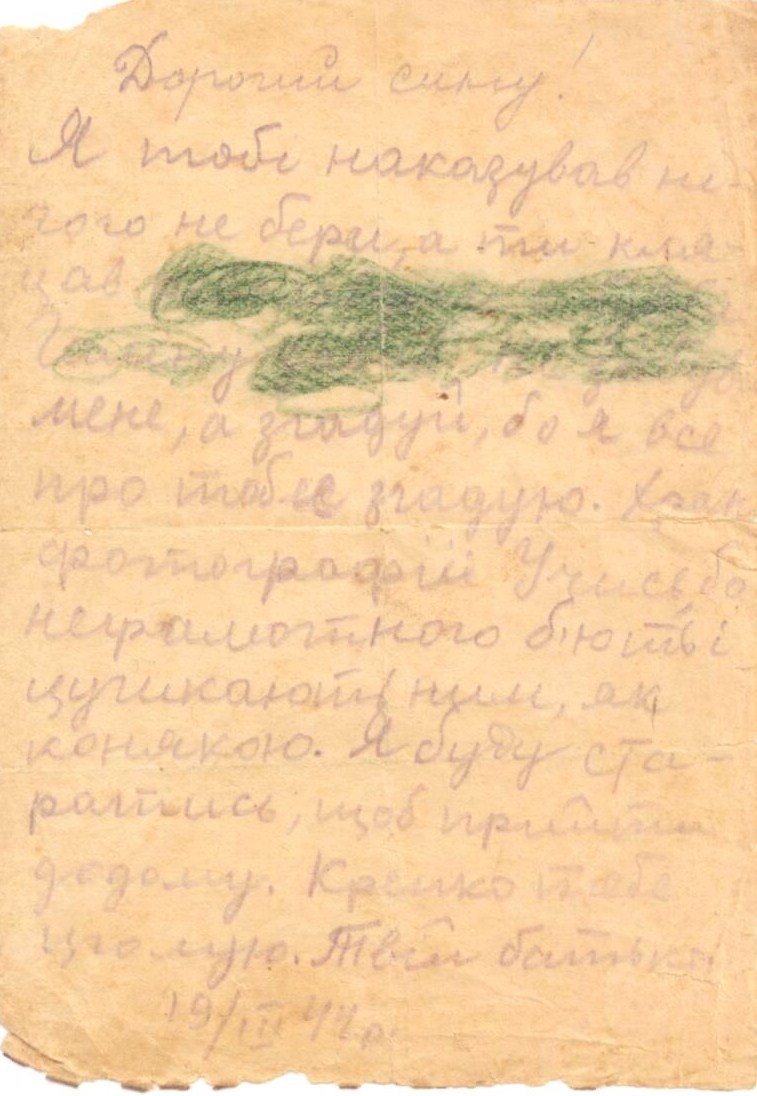 Дорогий сину!
Я тобі наказував ні-
чого не бери, а ти
цав
мене, а згадуй, бо я все
про тебе згадую.
фотографії Учись, бо
неграмотного б'ють і
цучикають ним, як
конякою. Я буду ста-
ратись, щоб прийти
додому. Крепко тебе
цюлую. Твій батько
19/III 44 р.